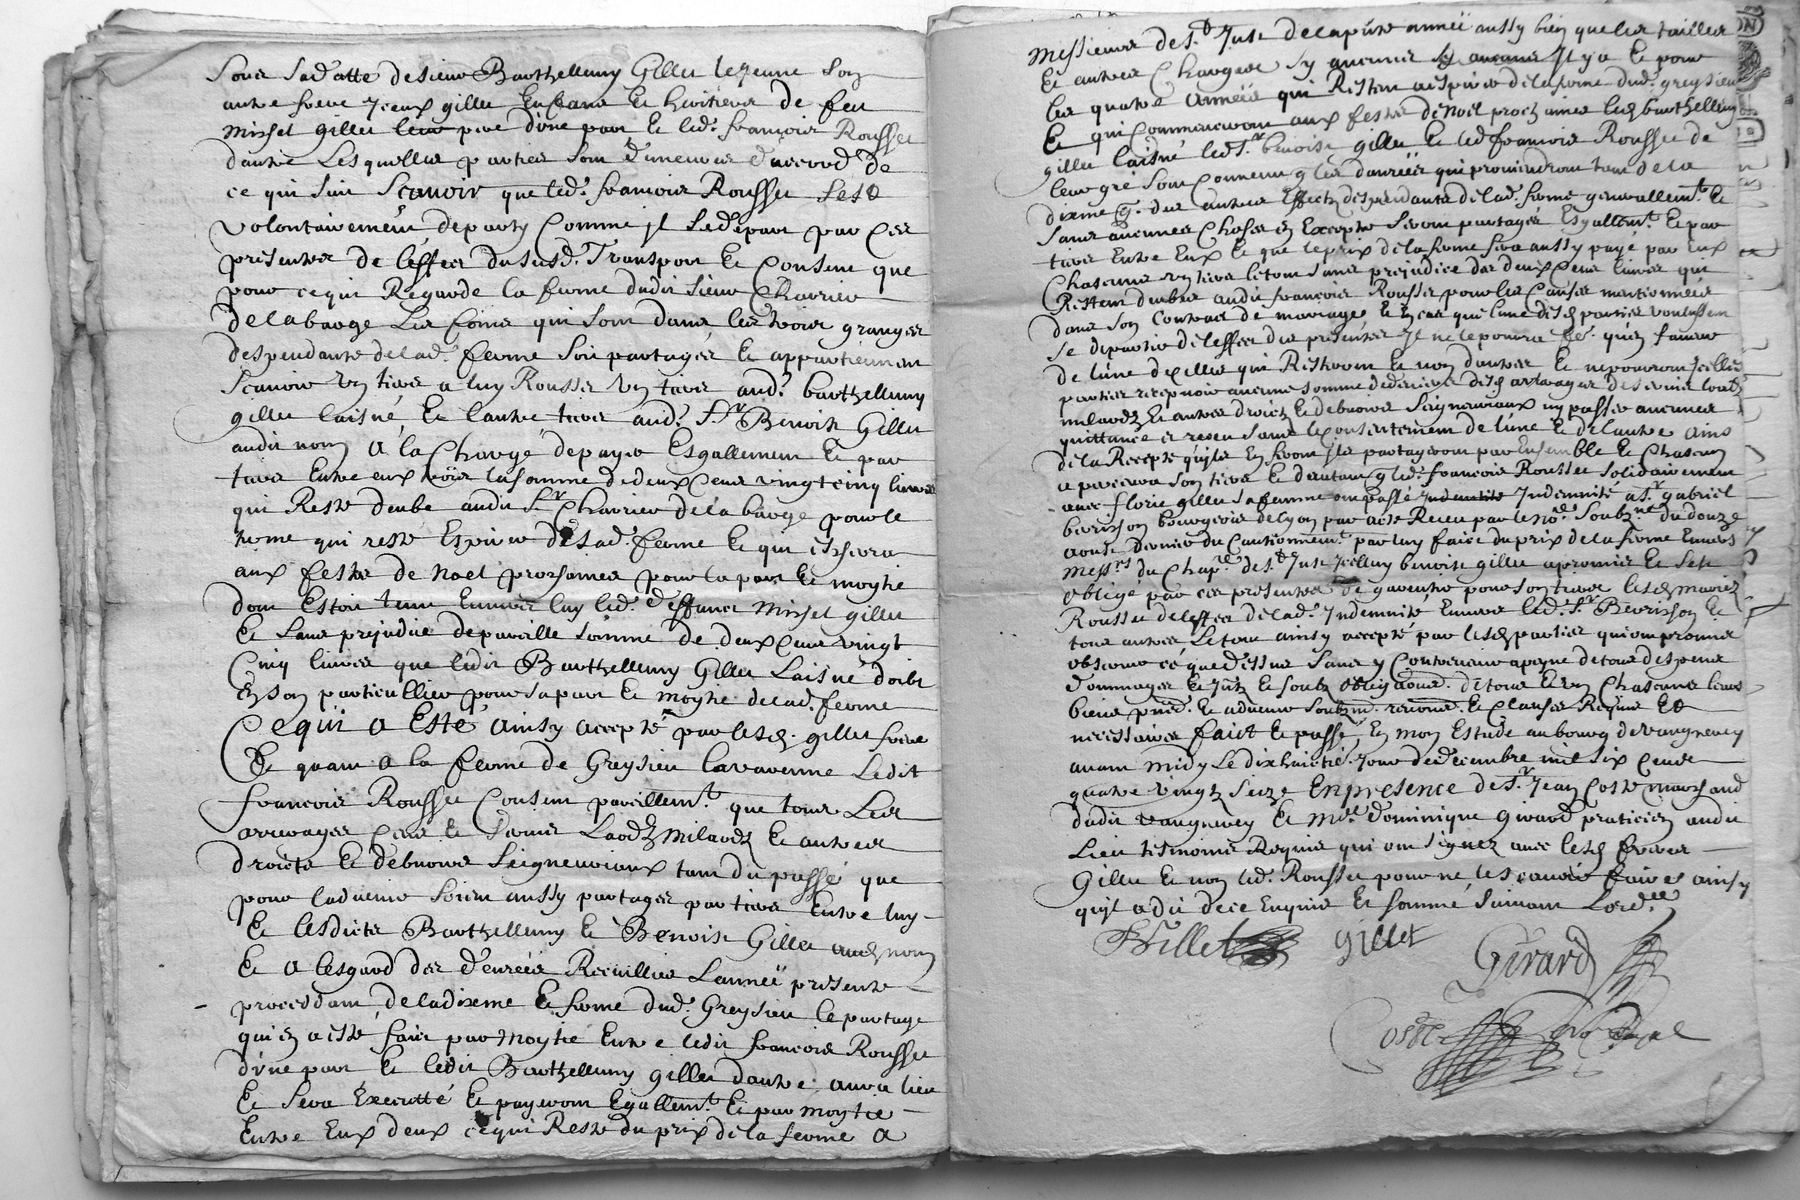 sous sad.atte de sieur Barthellemy Gillet le jeune son
autre frere yceux gillet Enfans et heritiers de feu
Missel gillet leur pere d'une part et led.t françois Rousset
d'autre Lesquelles parties sont demeures d'accord de
ce qui suit Scavoir que led.t françois Rousset sest
volontairement departy comme jl se depart par ces
presentes de l'effect dususd.t Transport et consent que
pour ce qui Regarde la ferme dudit sieur Charrier
de la barge Les foins qui sont dans les trois granges
despendants de lad.t ferme soit partagés et appartiennent
Scavoir un tiers a luy Rousset un tiers aud.t barthellemy
gillet laisné et l'autre tiers aud.t S.r Benoist Gillet
audit nom A la Charge de payer Esgallement et par
tiers Entre eux trois la somme de deux Cens vingt cinq livres
qui Reste deube audit S.r Charrier de la barge pour le
terme qui reste Espirer de lad.t ferme et qui escherra
aux festes de Noel prochaines pour la part et moytie
dont Estoit tenu Envers luy led.t deffunct Missel gillet
et sans prejudice de pareille somme de deux cens vingt
Cinq livres que ledit Barthellemy Gillet Laisné doibt
En son particullier pour sa part et moytie de lad.t ferme
Ce qui a Esté ainsy accepté par lesd. gillet freres
Et quant a la ferme de Greysieu la varenne Ledit
françois Rousset Consent pareillem.t que tous Les
arrerages cens et servis Laodz milaodz et autres
droicts et debvoirs Seigneuriaux tant du passé que
pour ladvenir soient aussy partagés par tiers Entre luy
Et lesdicts Barthellemy et Benoist Gillet aud. nom
Et a lesgard des denrées Recuillies Lannéë presente
procedant de la disme et ferme dud.t Greysieu le partage
qui en a esté fait par Moytié Entre ledit françois Rousset
d'une part Et ledit Barthellemy gillet d'autre aura lieu
Et Sera Executté Et payeront Egallem.t Et par Moytie
Entre Eux deux ce qui Reste du prix de la ferme A
Messieurs de S.t Just de la pnte annéë aussy bien que les tailles
Et autres Charges sy aucunes Il y a Et pour
les quatre Annéës qui Restent a espirer de la ferme dud.t greysieu
Et qui Commenceront aux festes de Noel prochaines lesd. barthellemy
gillet laisné led. S.r benoist gillet Et led françois Rousset de
leur gré sont Convenu q les danréës qui proviendront tant de la
disme q. des autres Effects despendants de lad. ferme generallem.t Et
sans aucunes Choses En Excepter seront partagés Esgallem.t Et par
tiers Entre Eux Et que le prix de la ferme sera aussy payé par Eux
Chascung un tiers le tout sans prejudice des deux Cens livres qui
Restent deubes audit françois Rousset pour les Causes mentionnéës
dans son Contract de mariage Et En cas que l'une desd. parties voulussent
se departir de l'effect des presentes Il ne le pourra qu'en faveur
de l'une dycelles qui Resteront Et non d'autres Et ne pourront Icelles
parties recepvoir aucune somme de deniers desd arrerages de servis laodz
milaodz Et autres droictz Et debvoirs Seigneuriaux ny passer aucunes
quittance et receu sans le Consentement de l'une Et de l'autre Ains
de la Recepte qu'ils En feront Ils partageront par Ensemble Et Chascun
a percevra son tiers Et d'autant q led.t françois Rousset solidairement
avec florie gillet sa femme ont passé Indemnité a S.r gabriel
berisson bourgeois de lyon par acte Receu par le no.re Soubz.né du douze
aoust dernier du Cautionnem.t par luy faict du prix de la ferme Envers
Mess.rs du Chap.re de S.t Just Icelluy benoist gillet a promis Et sest
obligé par ces presentes de garentir pour son tiers lesd. mariez
Rousset de l'effect de lad.t Indemnité Envers led.t S.r Berisson Et
tous autres Le tout ainsy accepté par lesd parties qui ont promis
observer ce que dessus sans y Contrevenir a peyne de tous despens
dommages Et Intz Et soubz obligaõns de tous Et un Chascuns leurs
biens pnts. Et advenir Soubzm. renonc. Et Clauses Requises Et
necessaires faict Et passé En mon Estude au bourg de Vaugneray
avant midy Le dixhuictie. Jour de decembre mil six Cents
quatre vingtz Seize En presence de S.r Jean Coste marchand
dudit vaugneray Et M.re Dominique Girard praticien audit
Lieu tesmoins Requis qui ont signez avec lesd. freres
Gillet Et non led.t Rousset pour ne les cavoir faire ainsy
qu'il a dit de ce Enquis Et sommé suivant Lord.ce
Gillet
Gillet
Girard
Coste